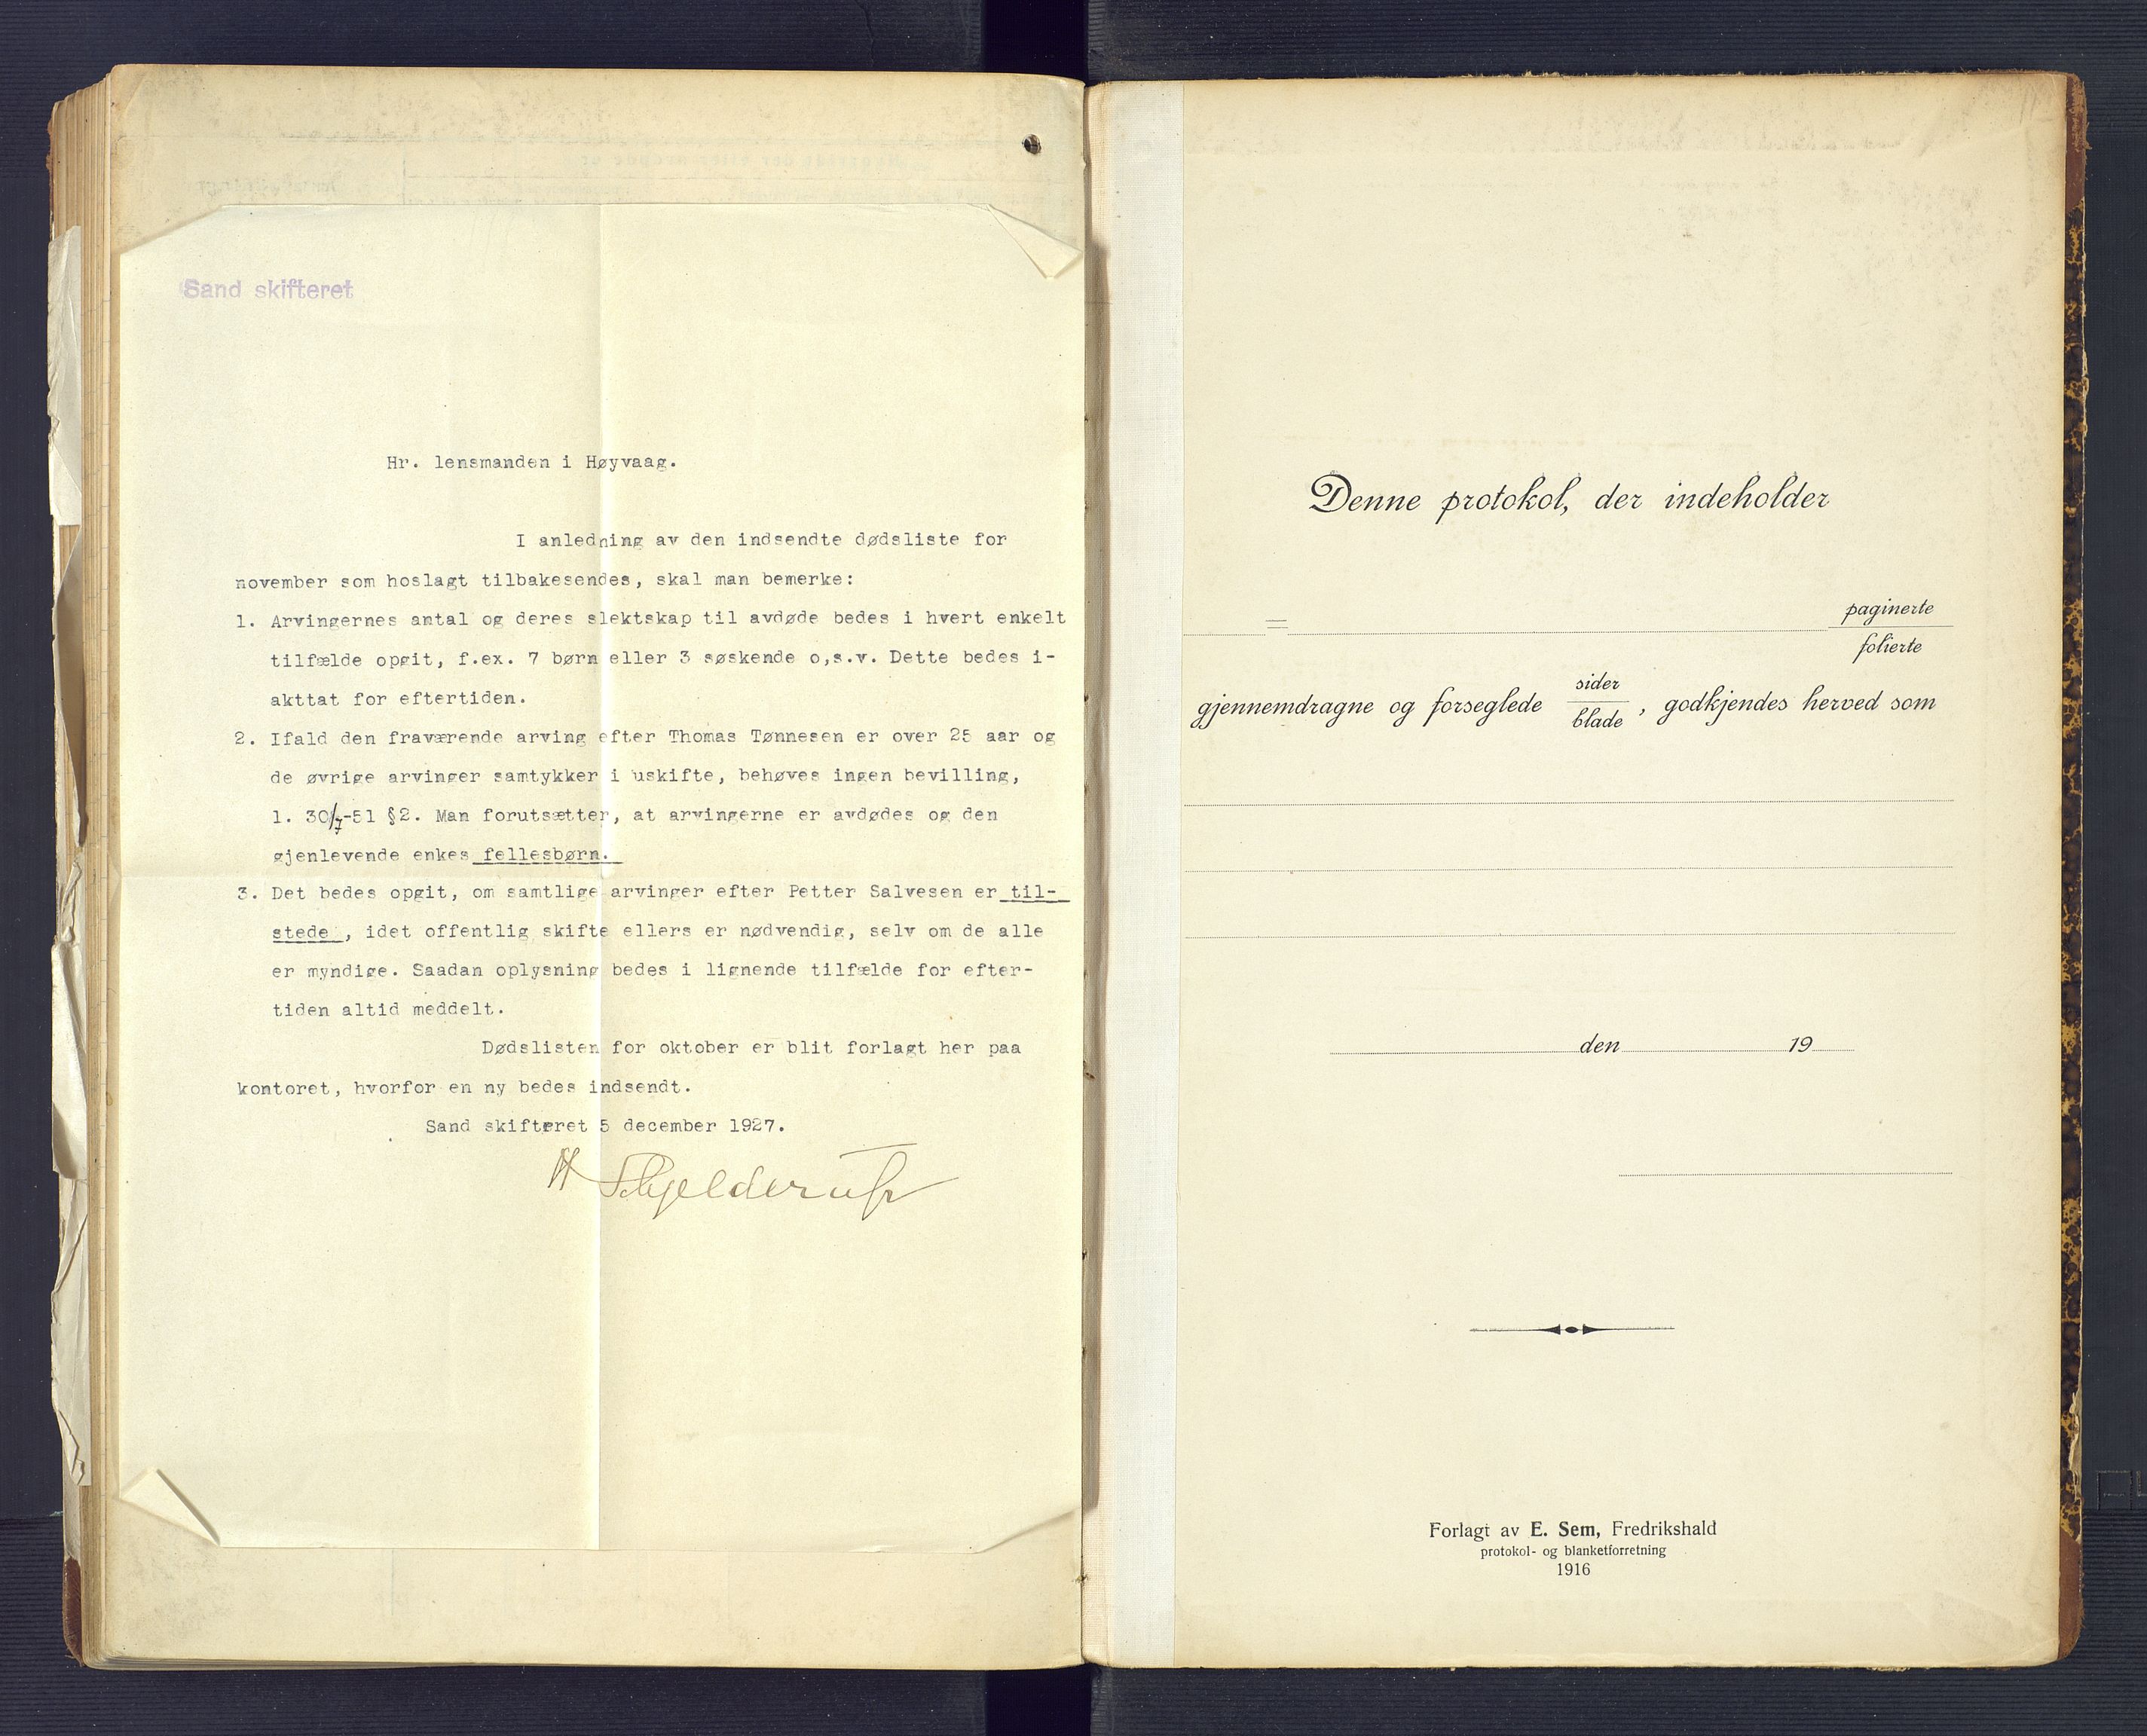 Sand skifteret
Hr. lensmanden i Høyvaag.
I anledning av den indsendte dødsliste for
november som hoslagt tilbakesendes, skal man bemerke:
1. Arvingernes antal og deres slektskap til avdøde bedes i hvert enkelt
tilfælde opgit, f.ex. 7 børn eller 3 søskende o,s.v. Dette bedes i-
akttat for eftertiden.
2. Ifald den fraværende arving efter Thomas Tønnesen er over 25 aar og
de øvrige arvinger samtykker i uskifte, behøves ingen bevilling,
l. 30/7-51 §2. Man forutsætter, at arvingerne er avdødes og den
gjenlevende enkes fellesbørn.
3. Det bedes opgit, om samtlige arvinger efter Petter Salvesen er til-
stede , idet offentlig skifte ellers er nødvendig, selv om de alle
er myndige. Saadan oplysning bedes i lignende tilfælde for efter-
tiden altid meddelt.
Dødslisten for oktober er blit forlagt her paa
kontoret, hvorfor en ny bedes indsendt.
Sand skifteret 5 december 1927.
H Schjelderup
Denne protokol, der indeholder
= paginerte
folierte
gjennemdragne og forseglede sider
blade , godkjendes herved som
den 19
Forlagt av E. Sem, Fredrikshald
protokol- og blanketforretning
1916